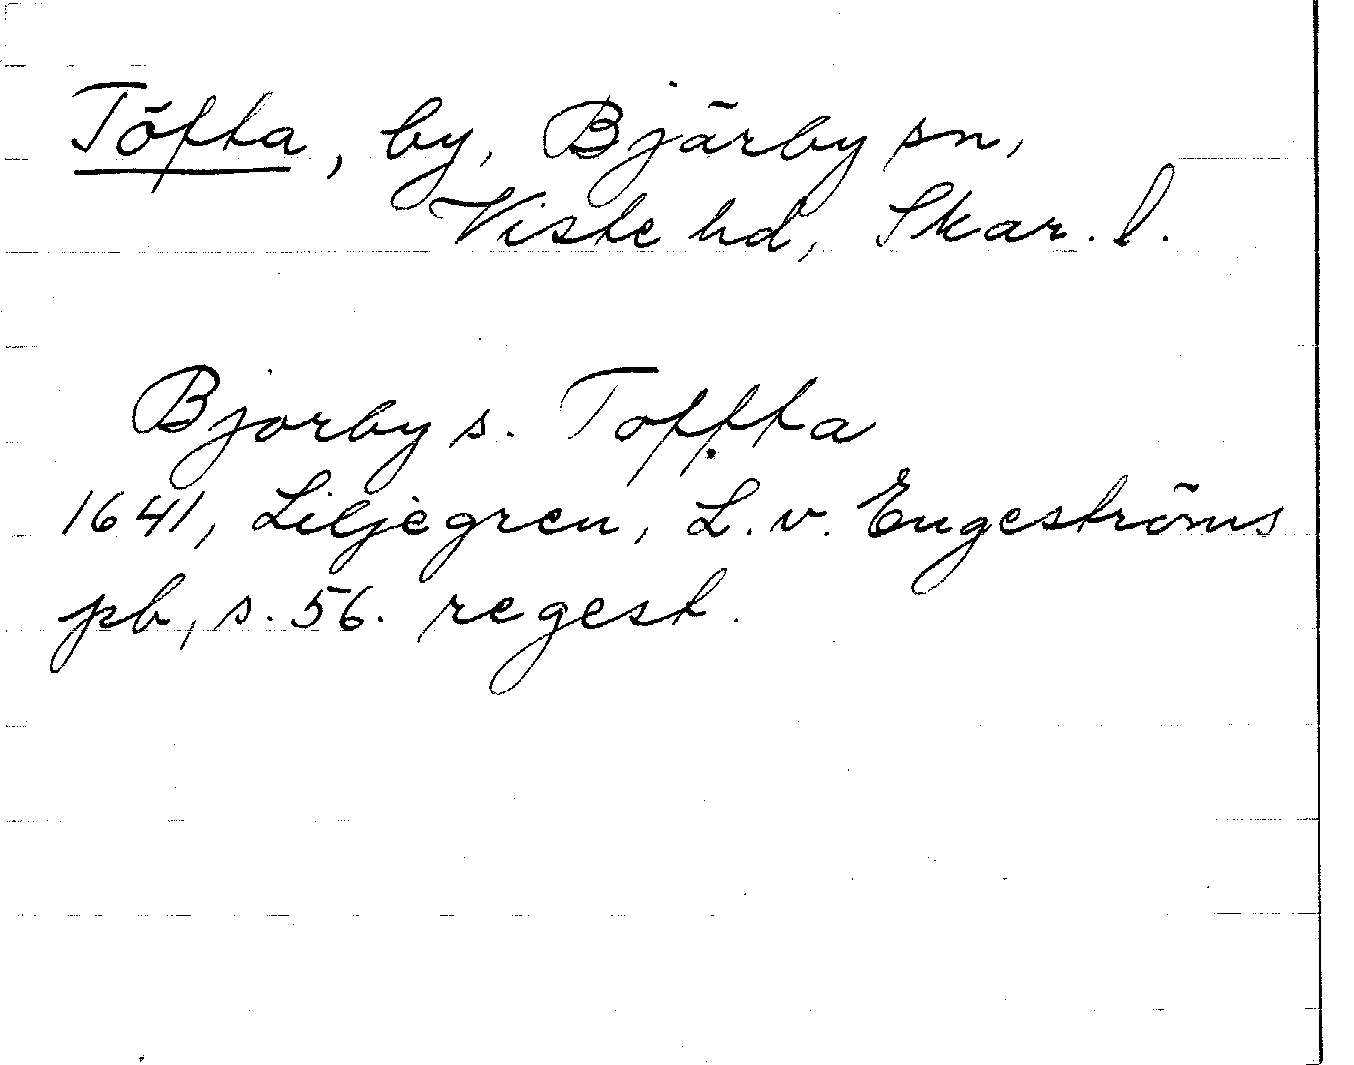 Töfta, by, Bjärby sn,
Viste hd, Skar. l.
Bjorby s. Toffta
1641, Liljegren, L. v. Engeströms
pb, s. 56. regest.